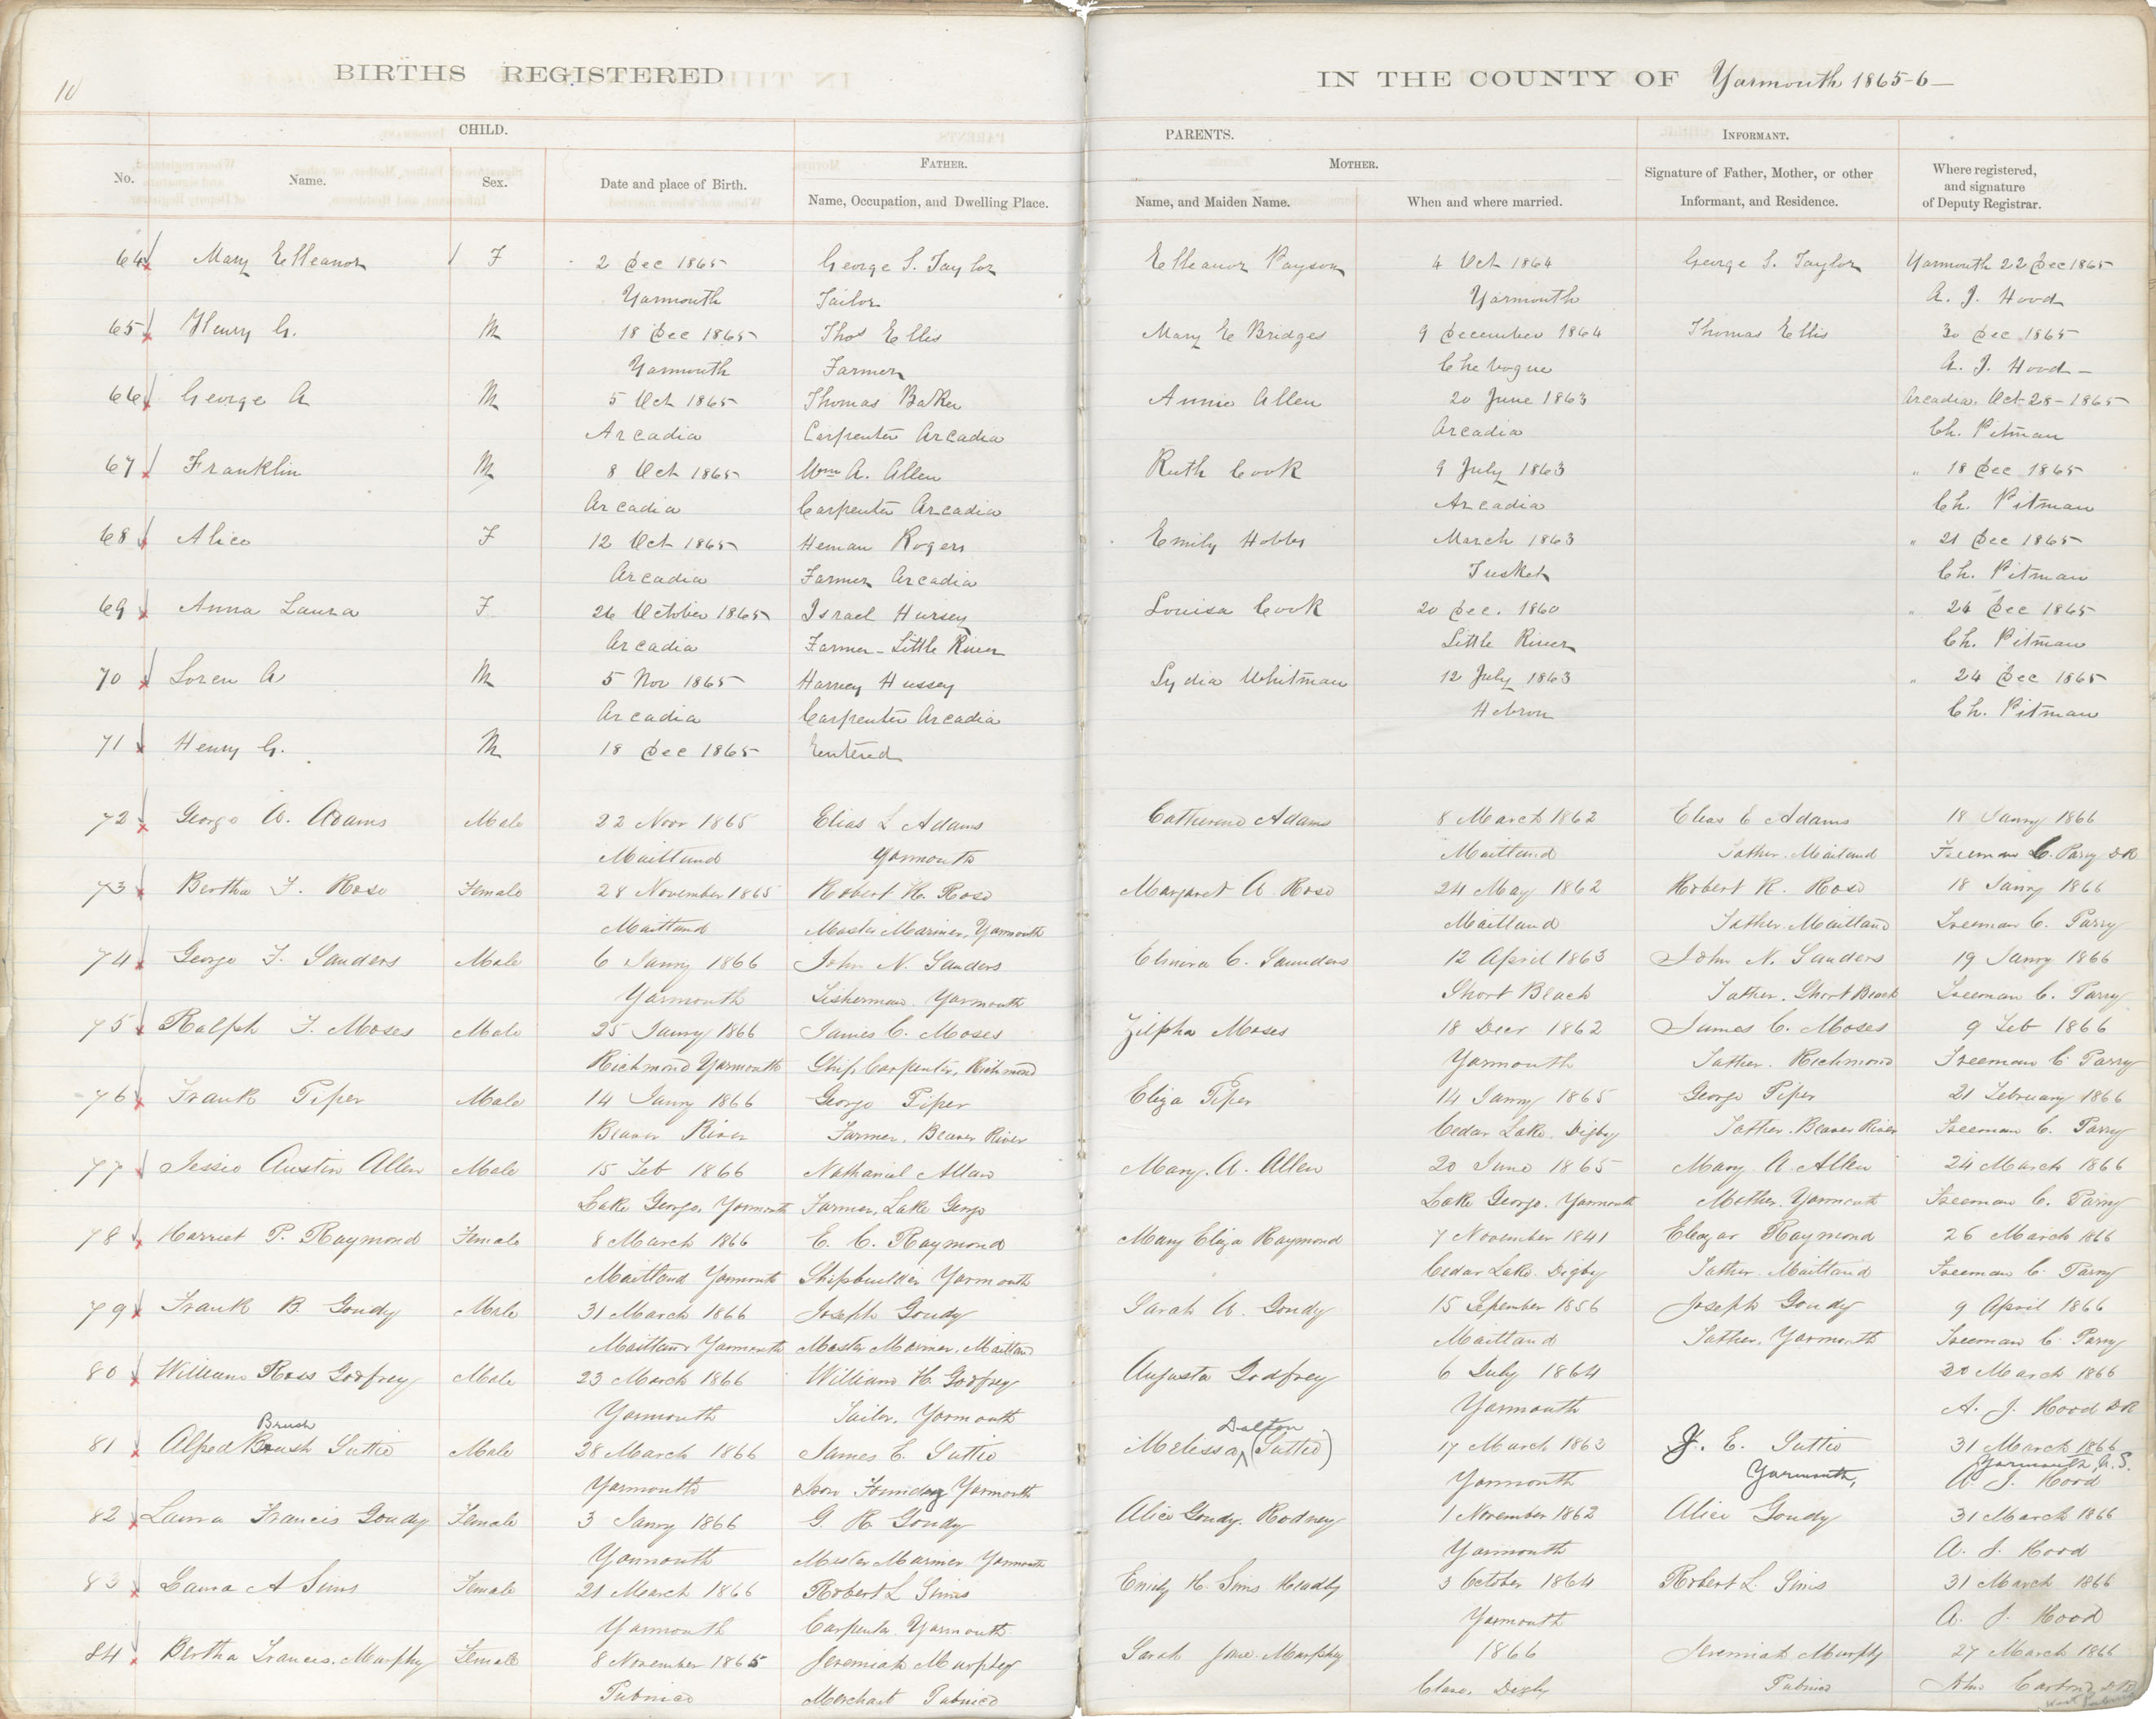 10
BIRTHS REGISTERED IN THE COUNTY OF Yarmouth 1865-6-
CHILD. PARENTS. INFORMANT.
FATHER. MOTHER.
No. Name. Sex. Date and place of Birth. Name, Occupation, and Dwelling Place. Name, and Maiden Name. When and where married. Signature of Father, Mother, or other Informant, and Residence. Where registered, and signature of Deputy Registrar.
64 Mary Elleanor F 2 Dec 1865 George S. Taylor Elleanor Payson 4 Oct 1864 George S. Taylor Yarmouth 22 Dec 1865
Yarmouth Tailor Yarmouth A. J. Hood
65 Henry G. M 18 Dec 1865 Thos Ellis Mary E Bridges 9 December 1864 Thomas Ellis 30 Dec 1865
Yarmouth Farmer Chebogue A. J. Hood -
66 George A M 5 Oct 1865 Thomas Baker Annie Allen 20 June 1863 Arcadia. Oct 28 - 1865
Arcadia Carpenter Arcadia Arcadia Ch. Pitman
67 Franklin M 8 Oct 1865 Wm A. Allen Ruth Cook 9 July 1863 " 18 Dec 1865
Arcadia Carpenter Arcadia Arcadia Ch. Pitman
68 Alice F 12 Oct 1865 Heman Rogers Emily Hobbs March 1863 " 21 Dec 1865
Arcadia Farmer Arcadia Tusket Ch. Pitman
69 Anna Laura F 26 October 1865 Israel Hursey Louisa Cook 20 Dec. 1860 " 24 Dec 1865
Arcadia Farmer - Little River Little River Ch. Pitman
70 Loren A M 5 Nov 1865 Harvey Hussey Lydia Whitman 12 July 1863 " 24 Dec 1865
Arcadia Carpenter Arcadia Hebron Ch. Pitman
71 Henry G. M 18 Dec 1865 Entered
72 George W. Adams Male 22 Novr 1865 Elias L Adams Catherine Adams 8 March 1862 Elias E Adams 18 Janry 1866
Maitland Yarmouth Maitland Father. Maitland Freeman C. Parry DR
73 Bertha F. Rose Female 28 November 1865 Robert H. Rose Margaret A Rose 24 May 1862 Robert R. Rose 18 Janry 1866
Maitland Master Mariner, Yarmouth Maitland Father. Maitland Freeman C. Parry
74 George F. Sanders Male 6 Janry 1866 John N. Sanders Elmira C. Saunders 12 April 1863 John N. Sanders 19 Janry 1866
Yarmouth Fisherman. Yarmouth Short Beach Father. Short Beach Freeman C. Parry
75 Ralph F. Moses Male 25 Janry 1866 James C. Moses Zilpha Moses 18 Decr 1862 James C. Moses 9 Feb 1866
Richmond Yarmouth Ship Carpenter, Richmond Yarmouth Father. Richmond Freeman C. Parry
76 Frank Piper Male 14 Janry 1866 George Piper Eliza Piper 14 Janry 1865 George Piper 21 February 1866
Beaver River Farmer. Beaver River Cedar Lake. Digby Father. Beaver River Freeman C. Parry
77 Jessie Austin Allen Male 15 Feb 1866 Nathaniel Allan Mary. A. Allen 20 June 1865 Mary A Allen 24 March 1866
Lake George, Yarmouth Farmer, Lake George Lake George. Yarmouth Mother. Yarmouth Freeman C. Parry
78 Harriet P. Raymond Female 8 March 1866 E. C. Raymond Mary Eliza Raymond 7 November 1841 Eleazar Raymond 26 March 1866
Maitland Yarmouth Shipbuilder Yarmouth Cedar Lake. Digby Father. Maitland Freeman C. Parry
79 Frank B. Goudy Male 31 March 1866 Joseph Goudy Sarah A. Goudy 15 September 1856 Joseph Goudy 9 April 1866
Maitland Yarmouth Master Mariner. Maitland Maitland Father, Yarmouth Freeman C. Parry
80 William Ross Godfrey Male 23 March 1866 William H. Godfrey Augusta Godfrey 6 July 1864 30 March 1866
Yarmouth Tailor, Yarmouth Yarmouth A. J. Hood DR
Brush Dalton
81 Alfred Brush Suttie Male 28 March 1866 James E. Suttie Melissa (Suttie) 17 March 1863 J. E. Suttie 31 March 1866
Yarmouth N.S.
Yarmouth Iron Foundry Yarmouth Yarmouth Yarmouth, A. J. Hood
82 Laura Francis Goudy Female 3 Janry 1866 G. R. Goudy Alice Goudy. Rodney 1 November 1862 Alice Goudy 31 March 1866
Yarmouth Master Mariner Yarmouth Yarmouth A. J. Hood
83 Laura A Sims Female 21 March 1866 Robert L Sims Emily H. Sims Headly 3 October 1864 Robert L. Sims 31 March 1866
Yarmouth Carpenter Yarmouth Yarmouth A. J. Hood
84 Bertha Francis. Murphy Female 8 November 1865 Jeremiah Murphy Sarah Jane Murphy 1866 Jeremiah Murphy 27 March 1866
Pubnico Merchant Pubnico Clare, Digby Pubnico John DR